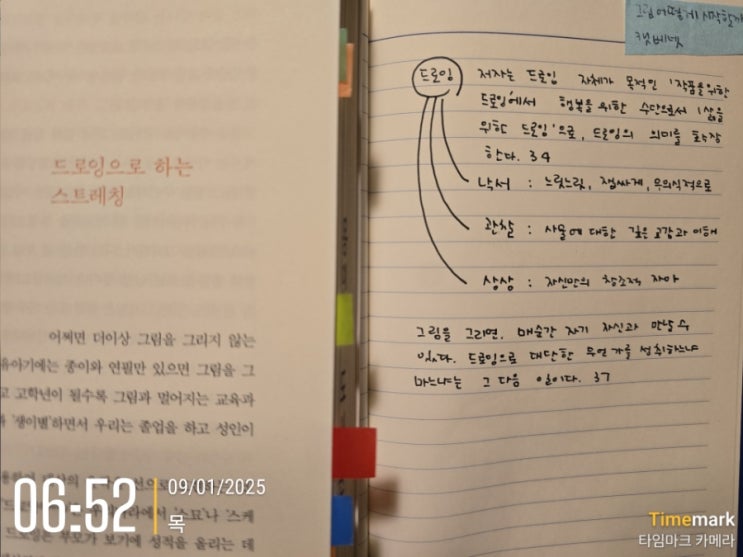 드로잉으로 하는
스트레칭
어쩌면 더이상 그림을 그리지 않는
유아기에는 종이와 연필만 있으면 그림을 그
고 고학년이 될수록 그림과 멀어지는 교육과
'쟁이별'하면서 우리는 졸업을 하고 성인이
선으로
에서 '스묘'나 '스케
드로잉은 부모가 보기에 성적을 올리는 데
그림 어떻게 시작할까
캣 베넷
드로잉
저자는 드로잉 자체가 목적인 '작품을 위한
드로잉'에서 행복을 위한 수단으로서 '삶을
위한 드로잉'으로, 드로잉의 의미를
한다. 34
낙서 : 느릿느릿, 잽싸게, 무의식적으로
관찰 : 사물에 대한 깊은 교감과 이해
상상 : 자신만의 창조적 자아
그림을 그리면, 매순간 자기 자신과 만날 수
있다. 드로잉으로 대단한 무언가를 성취하느냐
마느냐는 그 다음 일이다. 37
06:52
09/01/2025
목
Timemark
타임마크 카메라